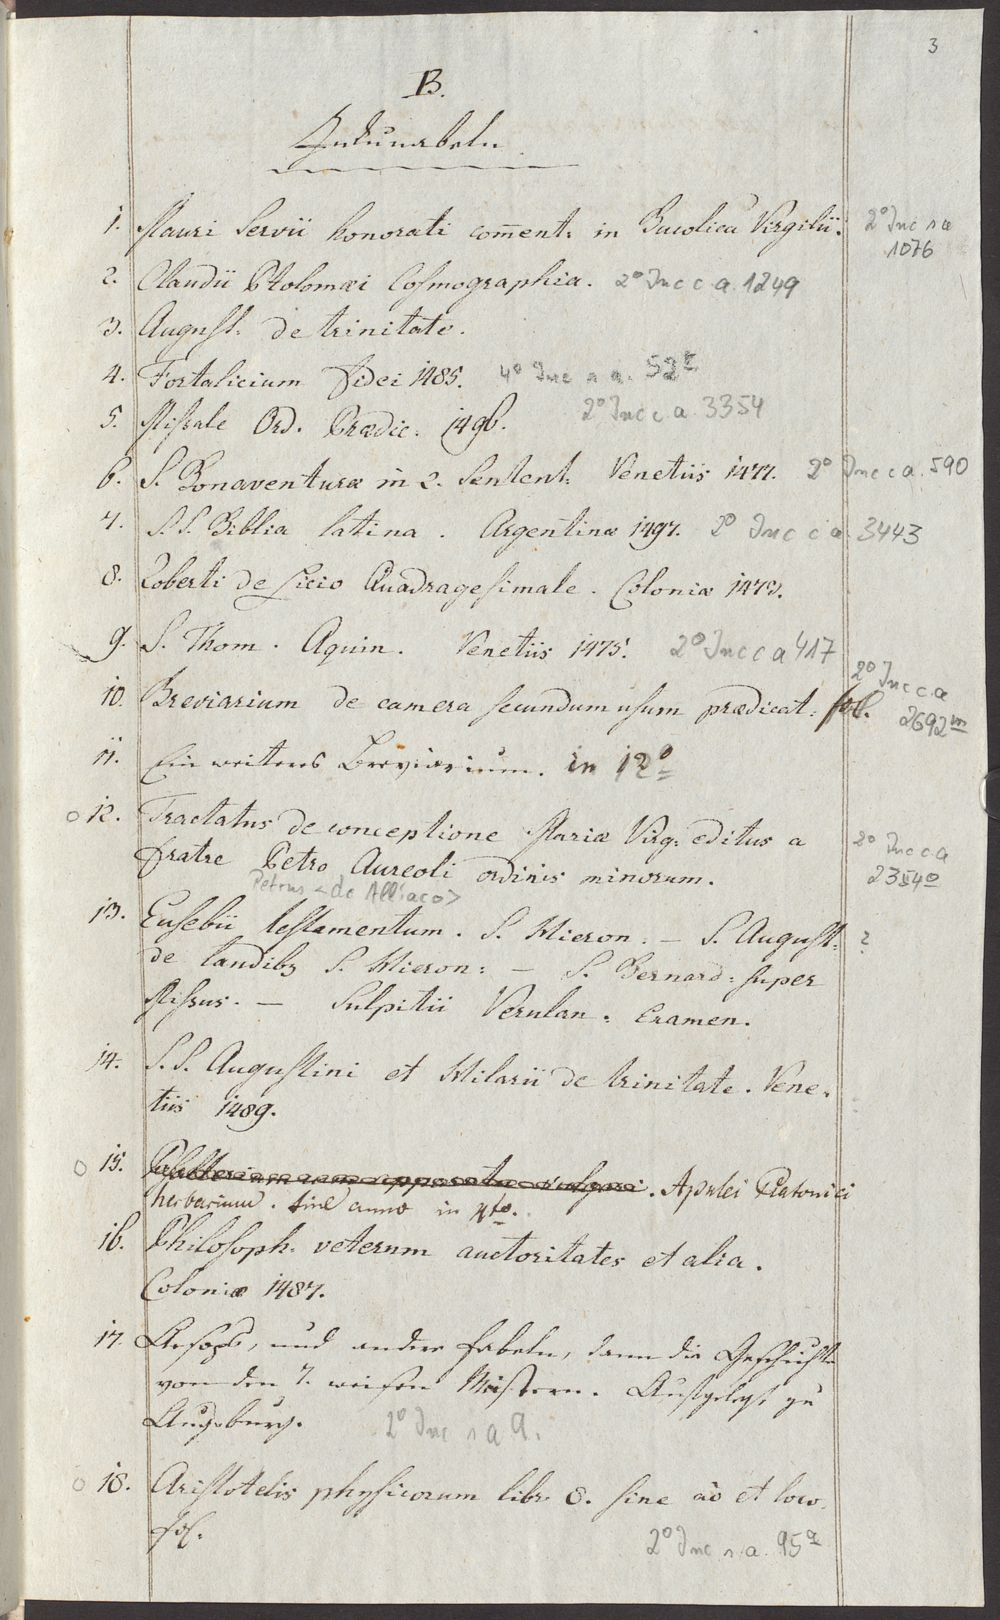 3
B.
Inkunabeln
1. Mauri Servii honorati coment: in Bucolica Virgilii. 2° Inc s a
1076
2. Claudii Ptolomæi Cosmographia. 2° Inc c a. 1249
3. August. de trinitate.
4. Fortalicium fidei 1485. 4° Inc s a. 52
5. Missale Ord. Prædic. 1496. 2° Inc c a. 3354
6. S. Bonaventuræ in 2. Sentent. Venetiis 1477. 2° Inc c a. 590
7. S.S. Biblia latina. Argentinæ 1497. 2° Inc c a. 3443
8. Roberti de Licio Quadragesimale. Coloniæ 1473.
9. S. Thom. Aquin. Venetiis 1475. 2° Inc c a 417
10. Breviarium de camera secundum usum prædicat: fol. 2° Inc c a
2692 m
11. Ein weiteres Breviarium. in 12°
12. Tractatus de conceptione Mariæ Virg. editus a 2° Inc c a
fratre Petro Aureoli ordinis minorum. 2354
Petrus <de Alliaco>
13. Eusebii testamentum. S. Hieron. – S. August: ?
de laudibz S. Hieron: – S. Bernard: super
Missus. – Sulpitii Verulan. Examen.
14. S.S. Augustini et Hilarii de trinitate. Vene-
tiis 1489.
15. Psalterium cum apparatu vulgari. Apulei Platonici
herbarium. sine anno in 4to.
16. Philosoph. veterum auctoritates et alia.
Coloniæ 1487.
17. Aesops, und andere fabeln, dann die Geschichte
von den 7. weisen Meistern. Ausgelegt zu
Augsburg. 2° Inc s a 9.
18. Aristotelis physicorum libr. 8. sine ao et loco.
fol.
2° Inc s. a. 95 a